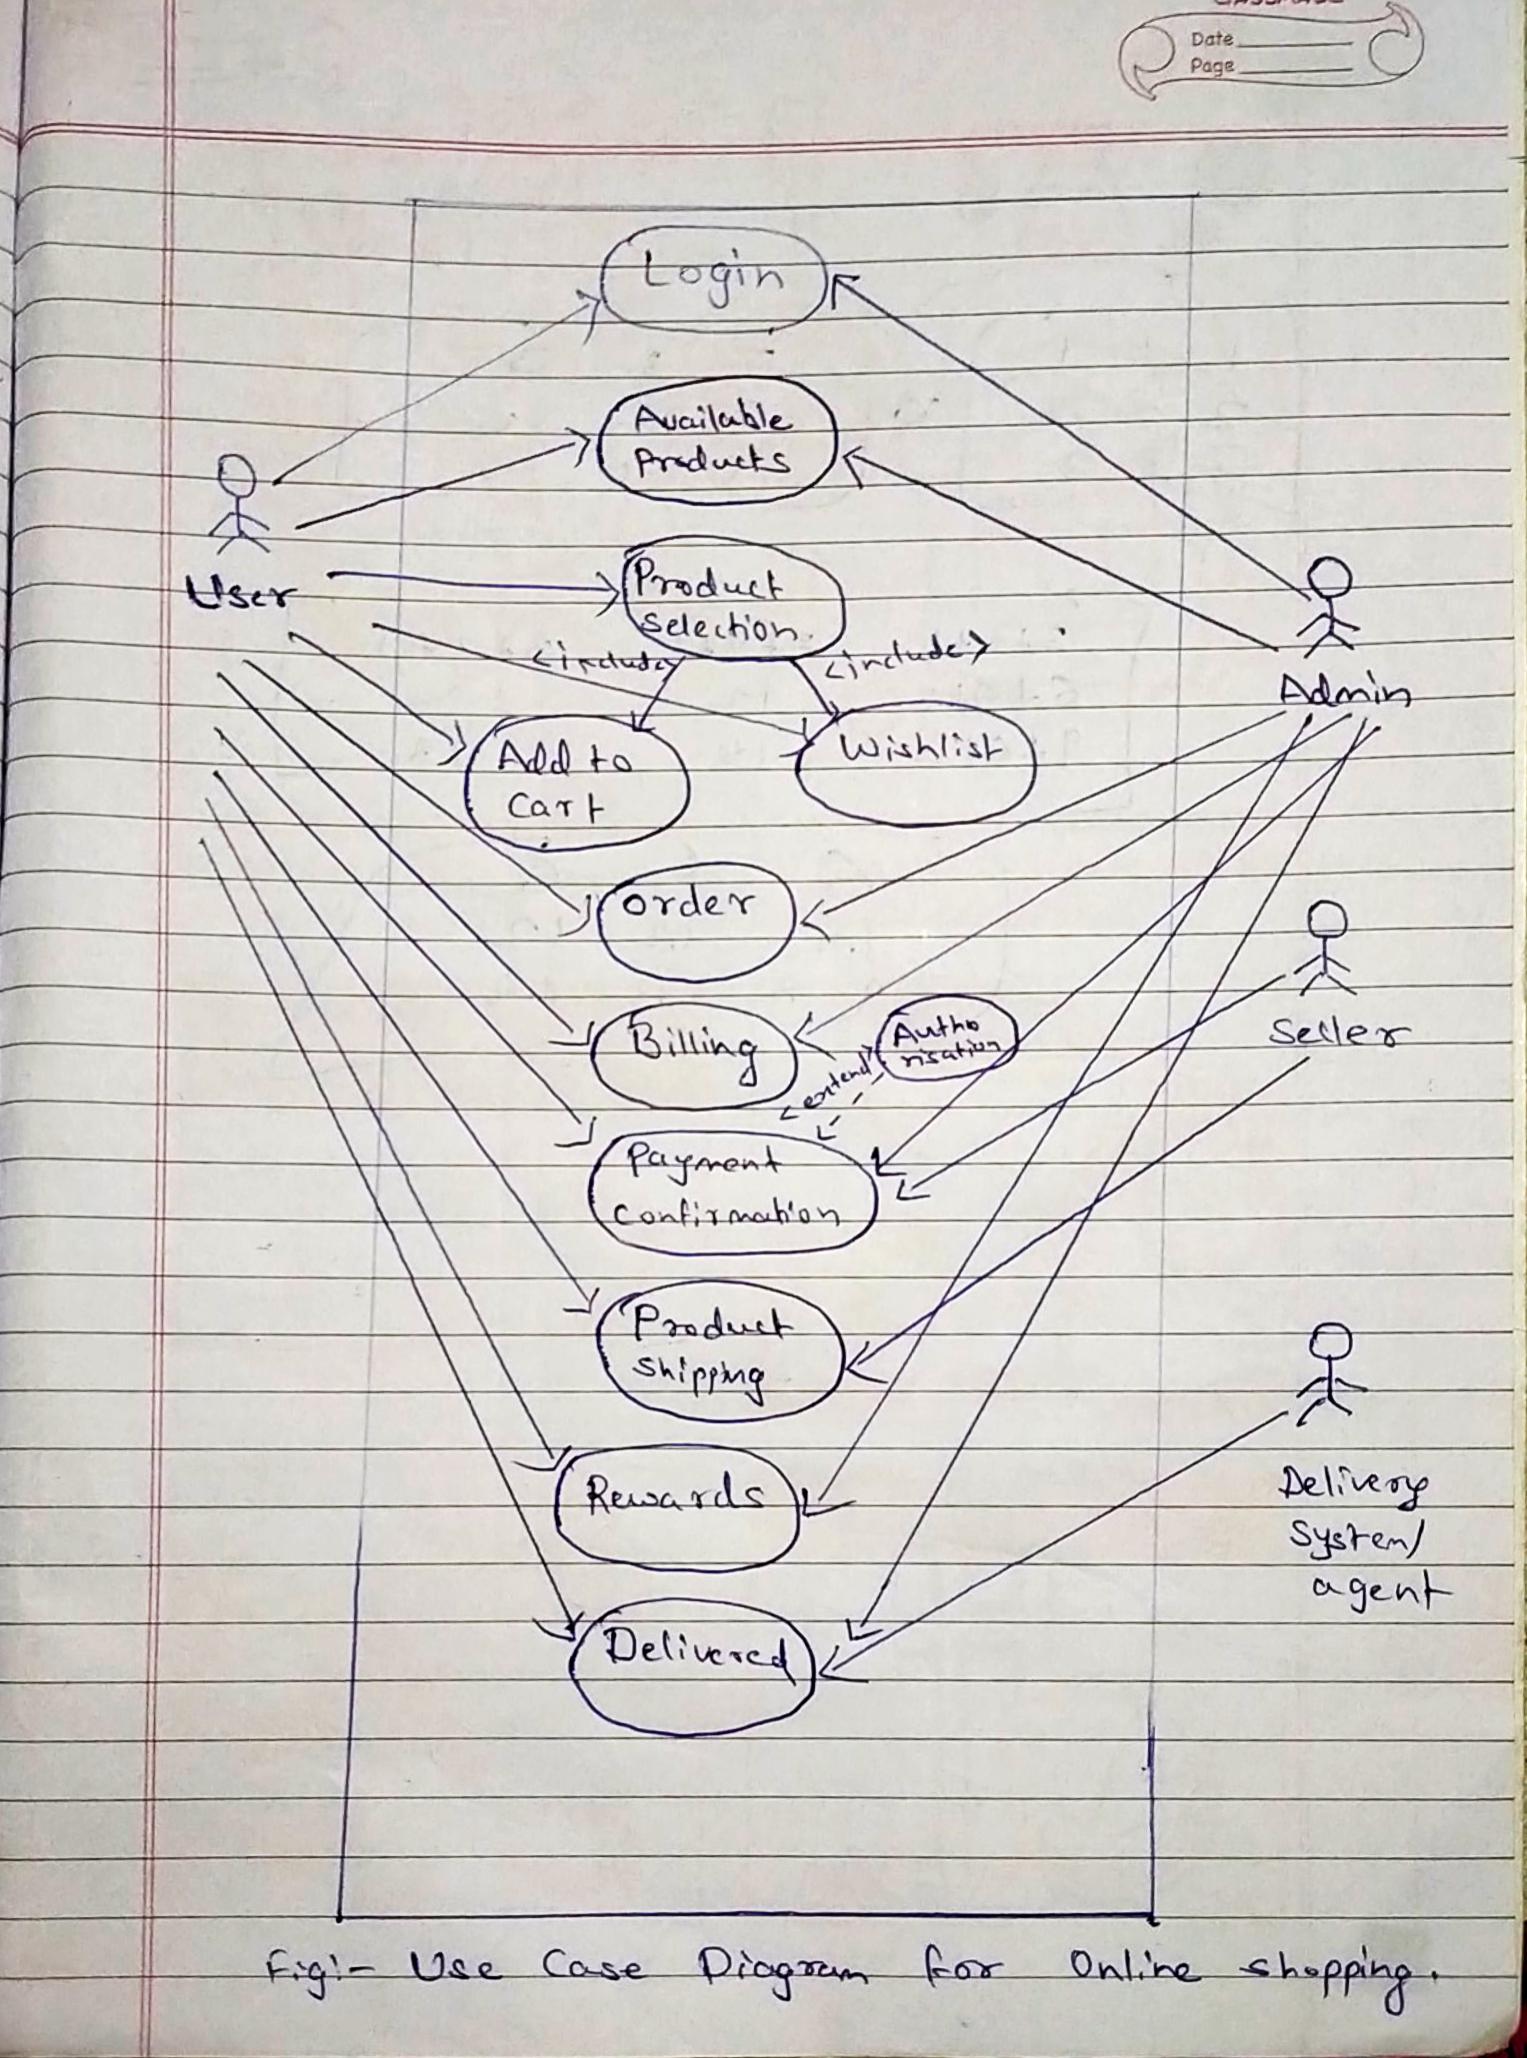 Date
Page
Login
Available
Products
User
Product
Selection.
<include>
<include>
Admin
Add to
Cart
Wishlist
Order
Seller
Billing
Autho
risation
<extend>
Payment
Confirmation
Product
Shipping
Rewards
Delivery
System/
agent
Delivered
Fig:- Use Case Diagram for Online shopping.